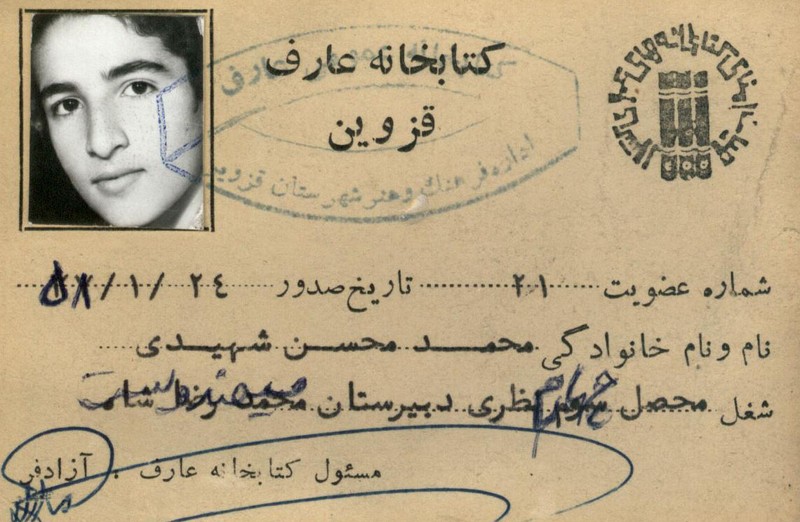 کتابخانه عارف
قزوین
اداره فرهنگ و هنر شهرستان قزوین
شماره عضویت ۲۱ تاریخ صدور ۲۴ /۱/ ۵۸
نام و نام خانوادگی محمد محسن شهیدی
شغل محصل چهارم نظری دبیرستان محمد رضا شاه
مسئول کتابخانه عارف . آزادفر